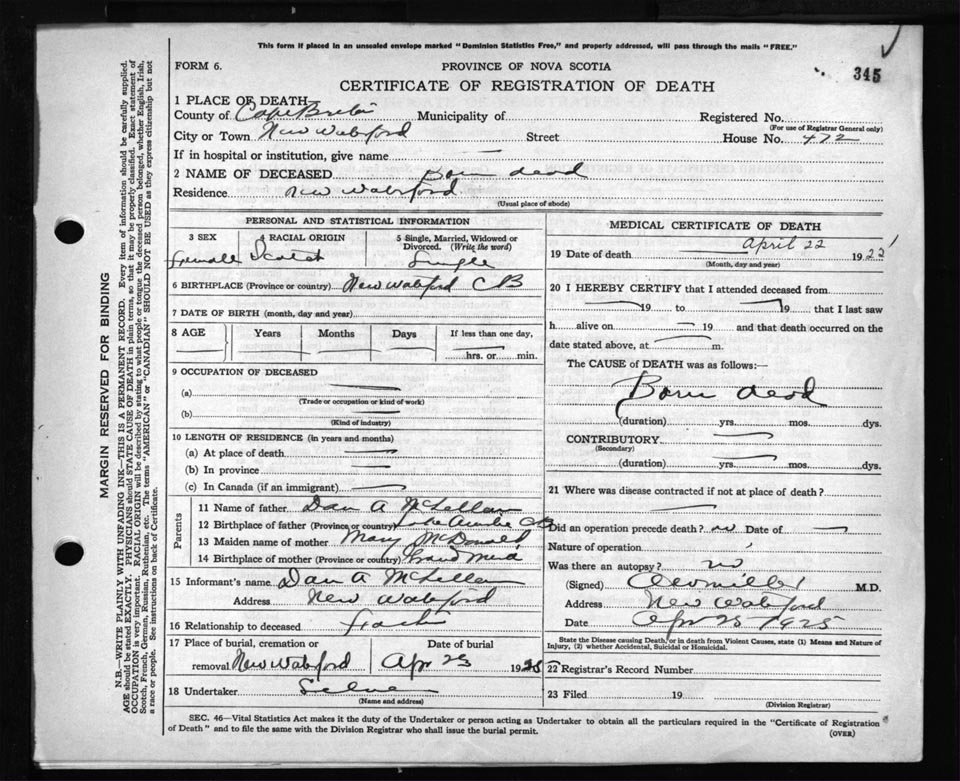 This form if placed in an unsealed envelope marked "Dominion Statistics Free," and properly addressed, will pass through the mails "FREE."
FORM 6.
PROVINCE OF NOVA SCOTIA
345
CERTIFICATE OF REGISTRATION OF DEATH
1 PLACE OF DEATH
County of Cape Breton Municipality of Registered No.
(For use of Registrar General only)
City or Town New Waterford Street House No. 472
If in hospital or institution, give name
2 NAME OF DECEASED Born dead
Residence New Waterford
(Usual place of abode)
PERSONAL AND STATISTICAL INFORMATION
3 SEX
Female
4 RACIAL ORIGIN
Scotch
5 Single, Married, Widowed or Divorced. (Write the word)
Single
6 BIRTHPLACE (Province or country) New Waterford CB
7 DATE OF BIRTH (month, day and year)
8 AGE Years Months Days If less than one day,
hrs. or min.
9 OCCUPATION OF DECEASED
(a)
(Trade or occupation or kind of work)
(b)
(Kind of industry)
10 LENGTH OF RESIDENCE (in years and months)
(a) At place of death
(b) In province
(c) In Canada (if an immigrant)
Parents
11 Name of father Dan A McLellan
12 Birthplace of father (Province or country) Lake Ainslie CB
13 Maiden name of mother Mary McDonald
14 Birthplace of mother (Province or Country)
15 Informant's name Dan A McLellan
Address New Waterford
16 Relationship to deceased
17 Place of burial, cremation or removal New Waterford
Date of burial
Apr 23 19
18 Undertaker
(Name and address)
MEDICAL CERTIFICATE OF DEATH
19 Date of death April 22 1922
(Month, day and year)
20 I HEREBY CERTIFY that I attended deceased from
19 to 19 that I last saw
h alive on 19 and that death occurred on the
date stated above, at m.
The CAUSE of DEATH was as follows:—
Born dead
(duration) yrs. mos. dys.
CONTRIBUTORY
(Secondary)
(duration) yrs. mos. dys.
21 Where was disease contracted if not at place of death?
Did an operation precede death? no Date of
Nature of operation
Was there an autopsy? no
(Signed) M.D.
Address New Waterford
Date Apr 25 1925
State the Disease causing Death, or in death from Violent Causes, state (1) Means and Nature of Injury, (2) whether Accidental, Suicidal or Homicidal.
22 Registrar's Record Number
23 Filed 19
(Division Registrar)
SEC. 46—Vital Statistics Act makes it the duty of the Undertaker or person acting as Undertaker to obtain all the particulars required in the "Certificate of Registration
of Death" and to file the same with the Division Registrar who shall issue the burial permit.
(OVER)
MARGIN RESERVED FOR BINDING
N.B.—WRITE PLAINLY WITH UNFADING INK—THIS IS A PERMANENT RECORD. Every item of information should be carefully supplied.
AGE should be stated EXACTLY. PHYSICIANS should STATE CAUSE OF DEATH in plain terms, so that it may be properly classified. Exact statement of
OCCUPATION is very important. RACIAL ORIGIN will be described by stating to what people or tongue the deceased person belonged, whether English, Irish,
Scotch, French, German, Russian, Ruthenian, etc. The terms "AMERICAN" or "CANADIAN" SHOULD NOT BE USED as they express citizenship but not
a race or people. See instructions on back of Certificate.